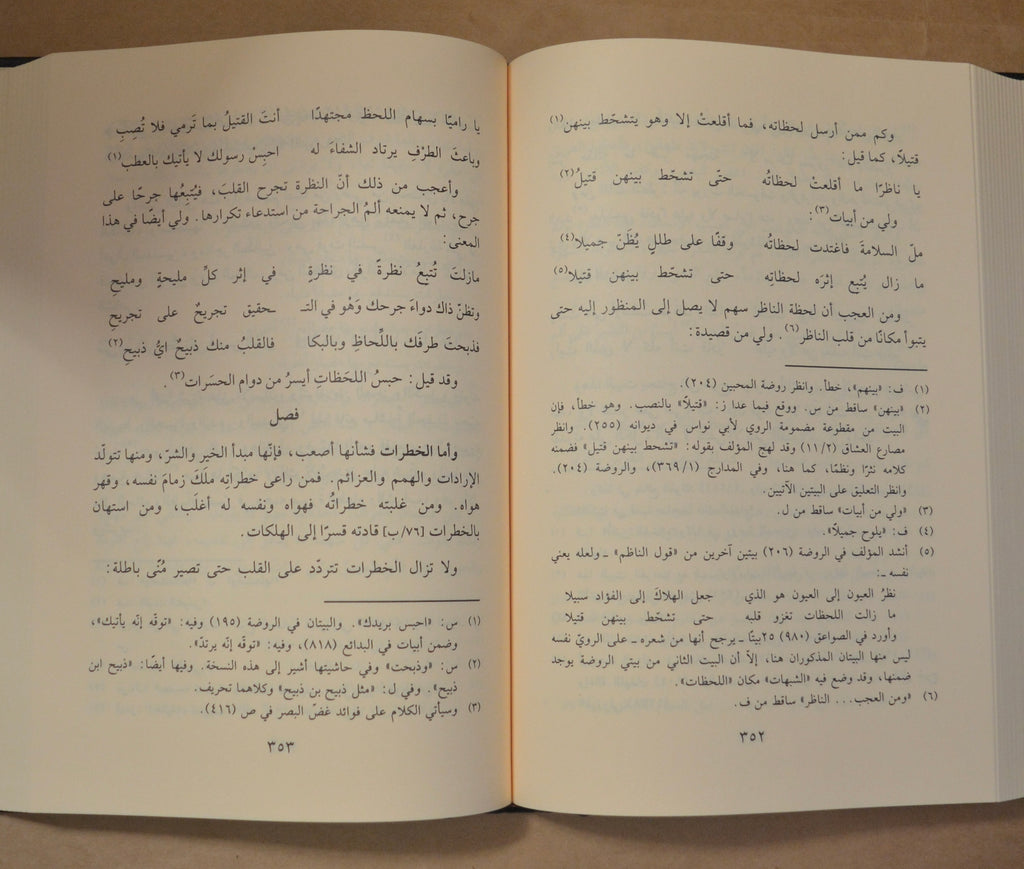 وكم ممن أرسل لحظاته، فما أقلعتْ إلا وهو يتشحّط بينهن(١)
قتيلًا، كما قيل:
يا ناظرًا ما أقلعتْ لحظاتُه حتّى تشحّط بينهن قتيلُ(٢)
ولي من أبيات(٣):
ملّ السلامةَ فاغتدت لحظاتُه وقفًا على طللٍ يُظَنّ جميلا(٤)
ما زال يُتبع إثرَه لحظاتِه حتى تشحّط بينهن قتيلا(٥)
ومن العجب أن لحظة الناظر سهم لا يصل إلى المنظور إليه حتى
يتبوأ مكانًا من قلب الناظر(٦). ولي من قصيدة:
(١) ف: «بينهم»، خطأ. وانظر روضة المحبين (٢٠٤).
(٢) «بينهن» ساقط من س. ووقع فيما عدا ز: «قتيلًا» بالنصب. وهو خطأ، فإن
البيت من مقطوعة مضمومة الروي لأبي نواس في ديوانه (٢٥٥). وانظر
مصارع العشاق (١١/٢) وقد لهج المؤلف بقوله: «تشحط بينهن قتيل» فضمنه
كلامه نثرًا ونظمًا، كما هنا، وفي المدارج (٣٦٩/١)، والروضة (٢٠٤).
وانظر التعليق على البيتين الآتيين.
(٣) «ولي من أبيات» ساقط من ل.
(٤) ف: «يلوح جميلًا».
(٥) أنشد المؤلف في الروضة (٢٠٦) بيتين آخرين من «قول الناظم» ـ ولعله يعني
نفسه ـ:
نظرُ العيون إلى العيون هو الذي جعل الهلاكَ إلى الفؤاد سبيلا
ما زالت اللحظات تغزو قلبه حتى تشحّط بينهن قتيلا
وأورد في الصواعق (٩٨٠) ٢٥بيتًا ـ يرجح أنها من شعره ـ على الرويّ نفسه
ليس منها البيتان المذكوران هنا، إلاّ أن البيت الثاني من بيتي الروضة يوجد
ضمنها، وقد وضع فيه «الشبهات» مكان «اللحظات».
(٦) «ومن العجب... الناظر» ساقط من ف.
٣٥٢
يا راميًا بسهام اللحظ مجتهدًا أنتَ القتيلُ بما تَرمي فلا تُصِبِ
وباعثَ الطرْفِ يرتاد الشفاءَ له احبِسْ رسولك لا يأتيك بالعطب(١)
وأعجب من ذلك أنّ النظرة تجرح القلبَ، فيُتبِعُها جرحًا على
جرح، ثم لا يمنعه ألمُ الجراحة من استدعاء تكرارها. ولي أيضًا في هذا
المعنى:
مازلتَ تُتبِعُ نظرةً في نظرةٍ في إثر كلِّ مليحةٍ ومليحِ
وتظنّ ذاك دواءَ جرحك وَهْو في التـ ـحقيق تجريحٌ على تجريحِ
فذبحتَ طرفَك باللِّحاظِ وبالبكا فالقلبُ منك ذبيحٌ ايُّ ذبيحِ(٢)
وقد قيل: حبسُ اللحَظاتِ أيسرُ من دوام الحسَرات(٣).
فصل
وأما الخطرات فشأنها أصعب، فإنّها مبدأ الخير والشرّ، ومنها تتولّد
الإرادات والهمم والعزائم. فمن راعى خطراتِه ملَكَ زمامَ نفسه، وقهر
هواه. ومن غلبته خطراتُه فهواه ونفسه له أغلَب، ومن استهان
بالخطرات [٧٦/ب] قادته قسرًا إلى الهلكات.
ولا تزال الخطرات تتردّد على القلب حتى تصير مُنًى باطلة:
(١) س: «احبس بريدك». والبيتان في الروضة (١٩٥) وفيه: «توقّه إنّه يأتيك»،
وضمن أبيات في البدائع (٨١٨)، وفيه: «توقّه إنّه يرتدّ».
(٢) س: «وذبحت» وفي حاشيتها أشير إلى هذه النسخة. وفيها أيضًا: «ذبيح ابن
ذبيح». وفي ل: «مثل ذبيح بن ذبيح» وكلاهما تحريف.
(٣) وسيأتي الكلام على فوائد غضّ البصر في ص (٤١٦).
٣٥٣